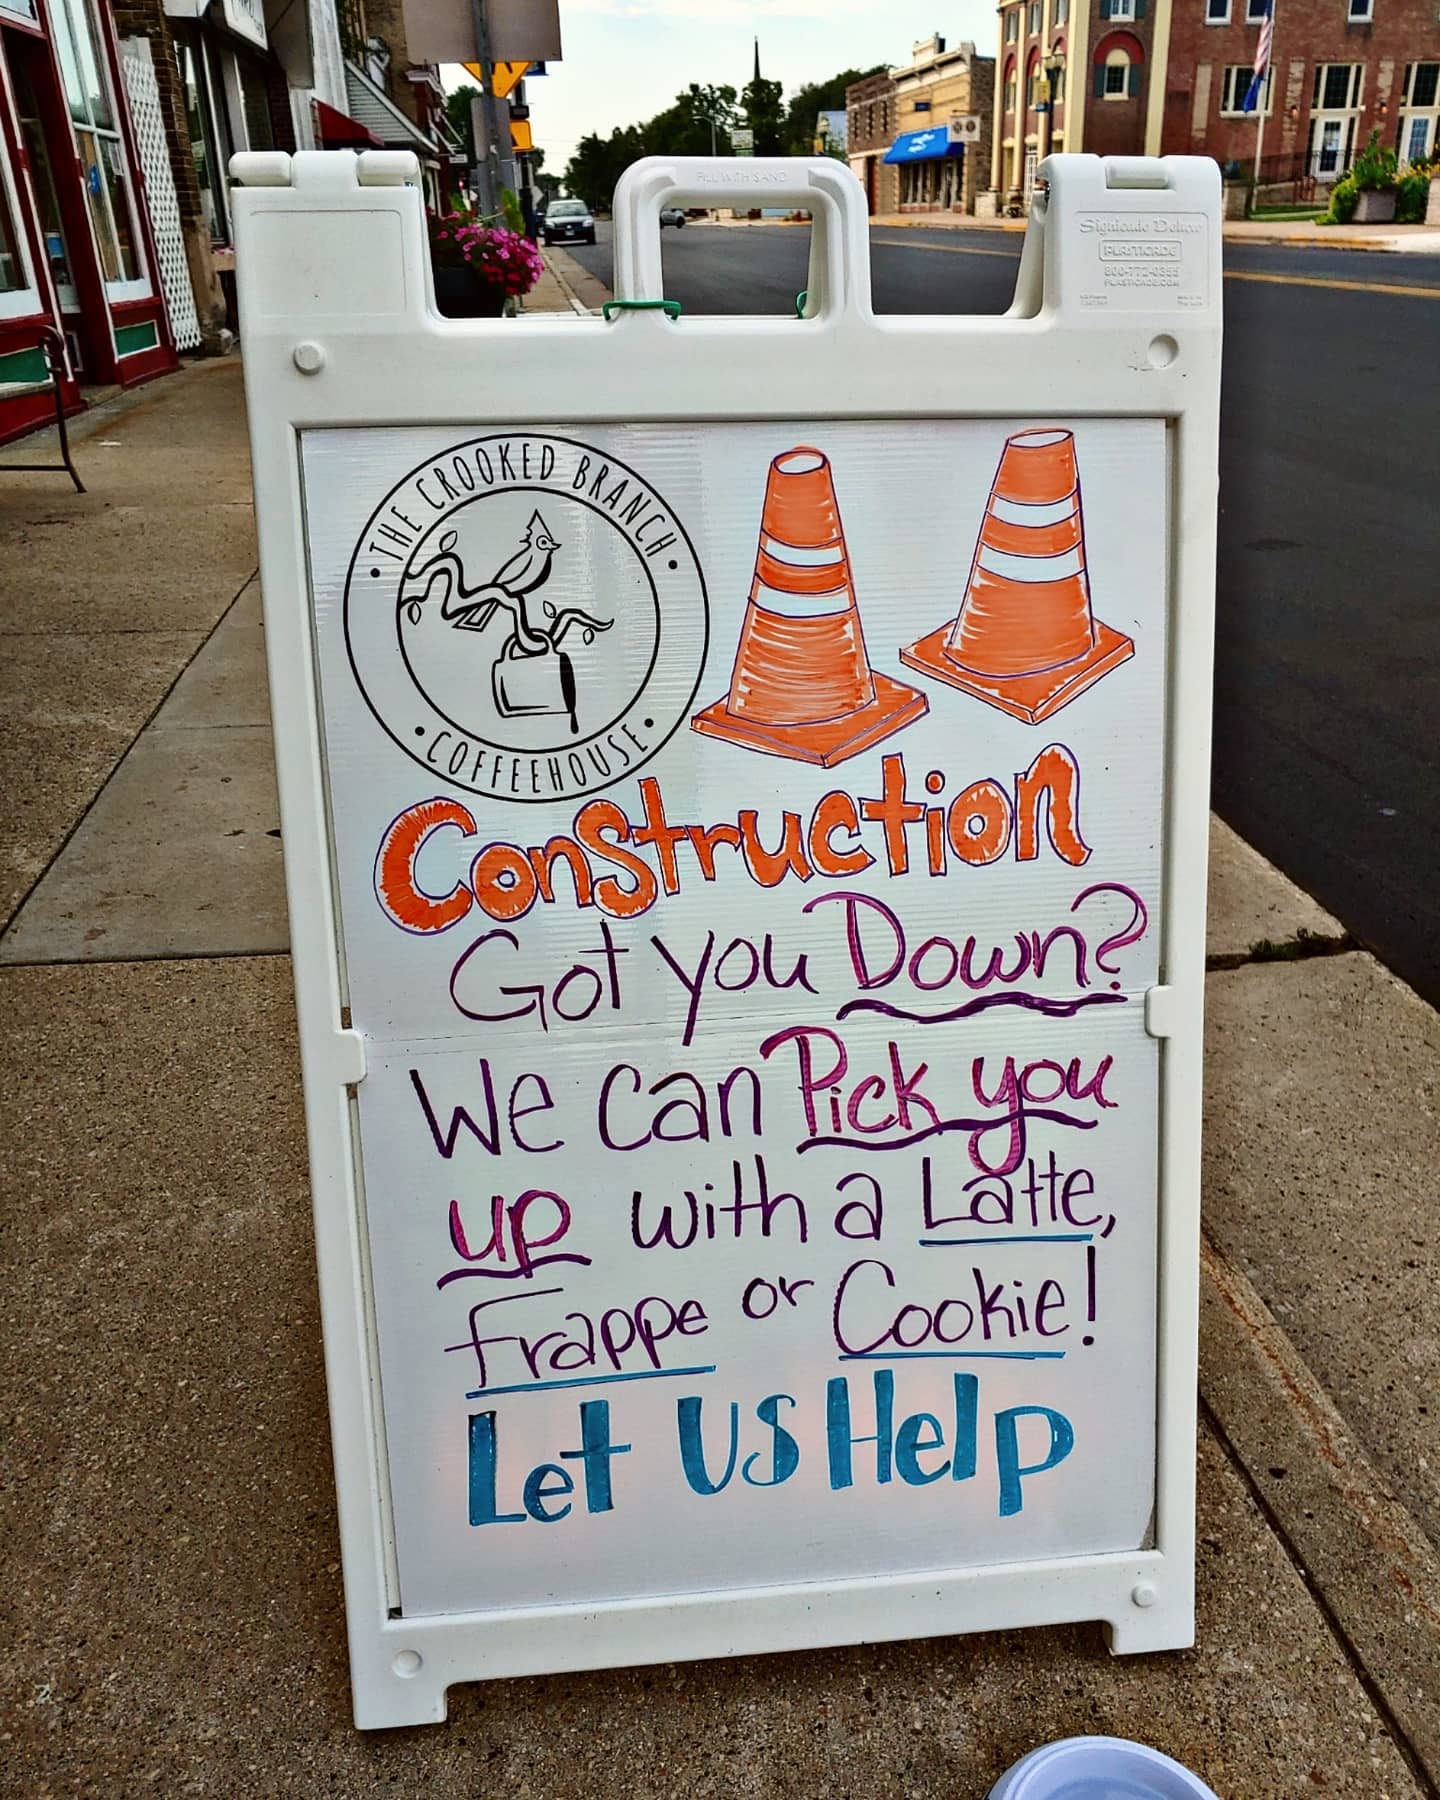 FILL WITH SAND
Signicade Deluxe
PLASTICADE
800-772-0355
PLASTICADE.COM
THE CROOKED BRANCH
COFFEEHOUSE
Construction
Got you Down?
We can Pick you
up with a Latte,
Frappe or Cookie!
Let Us Help